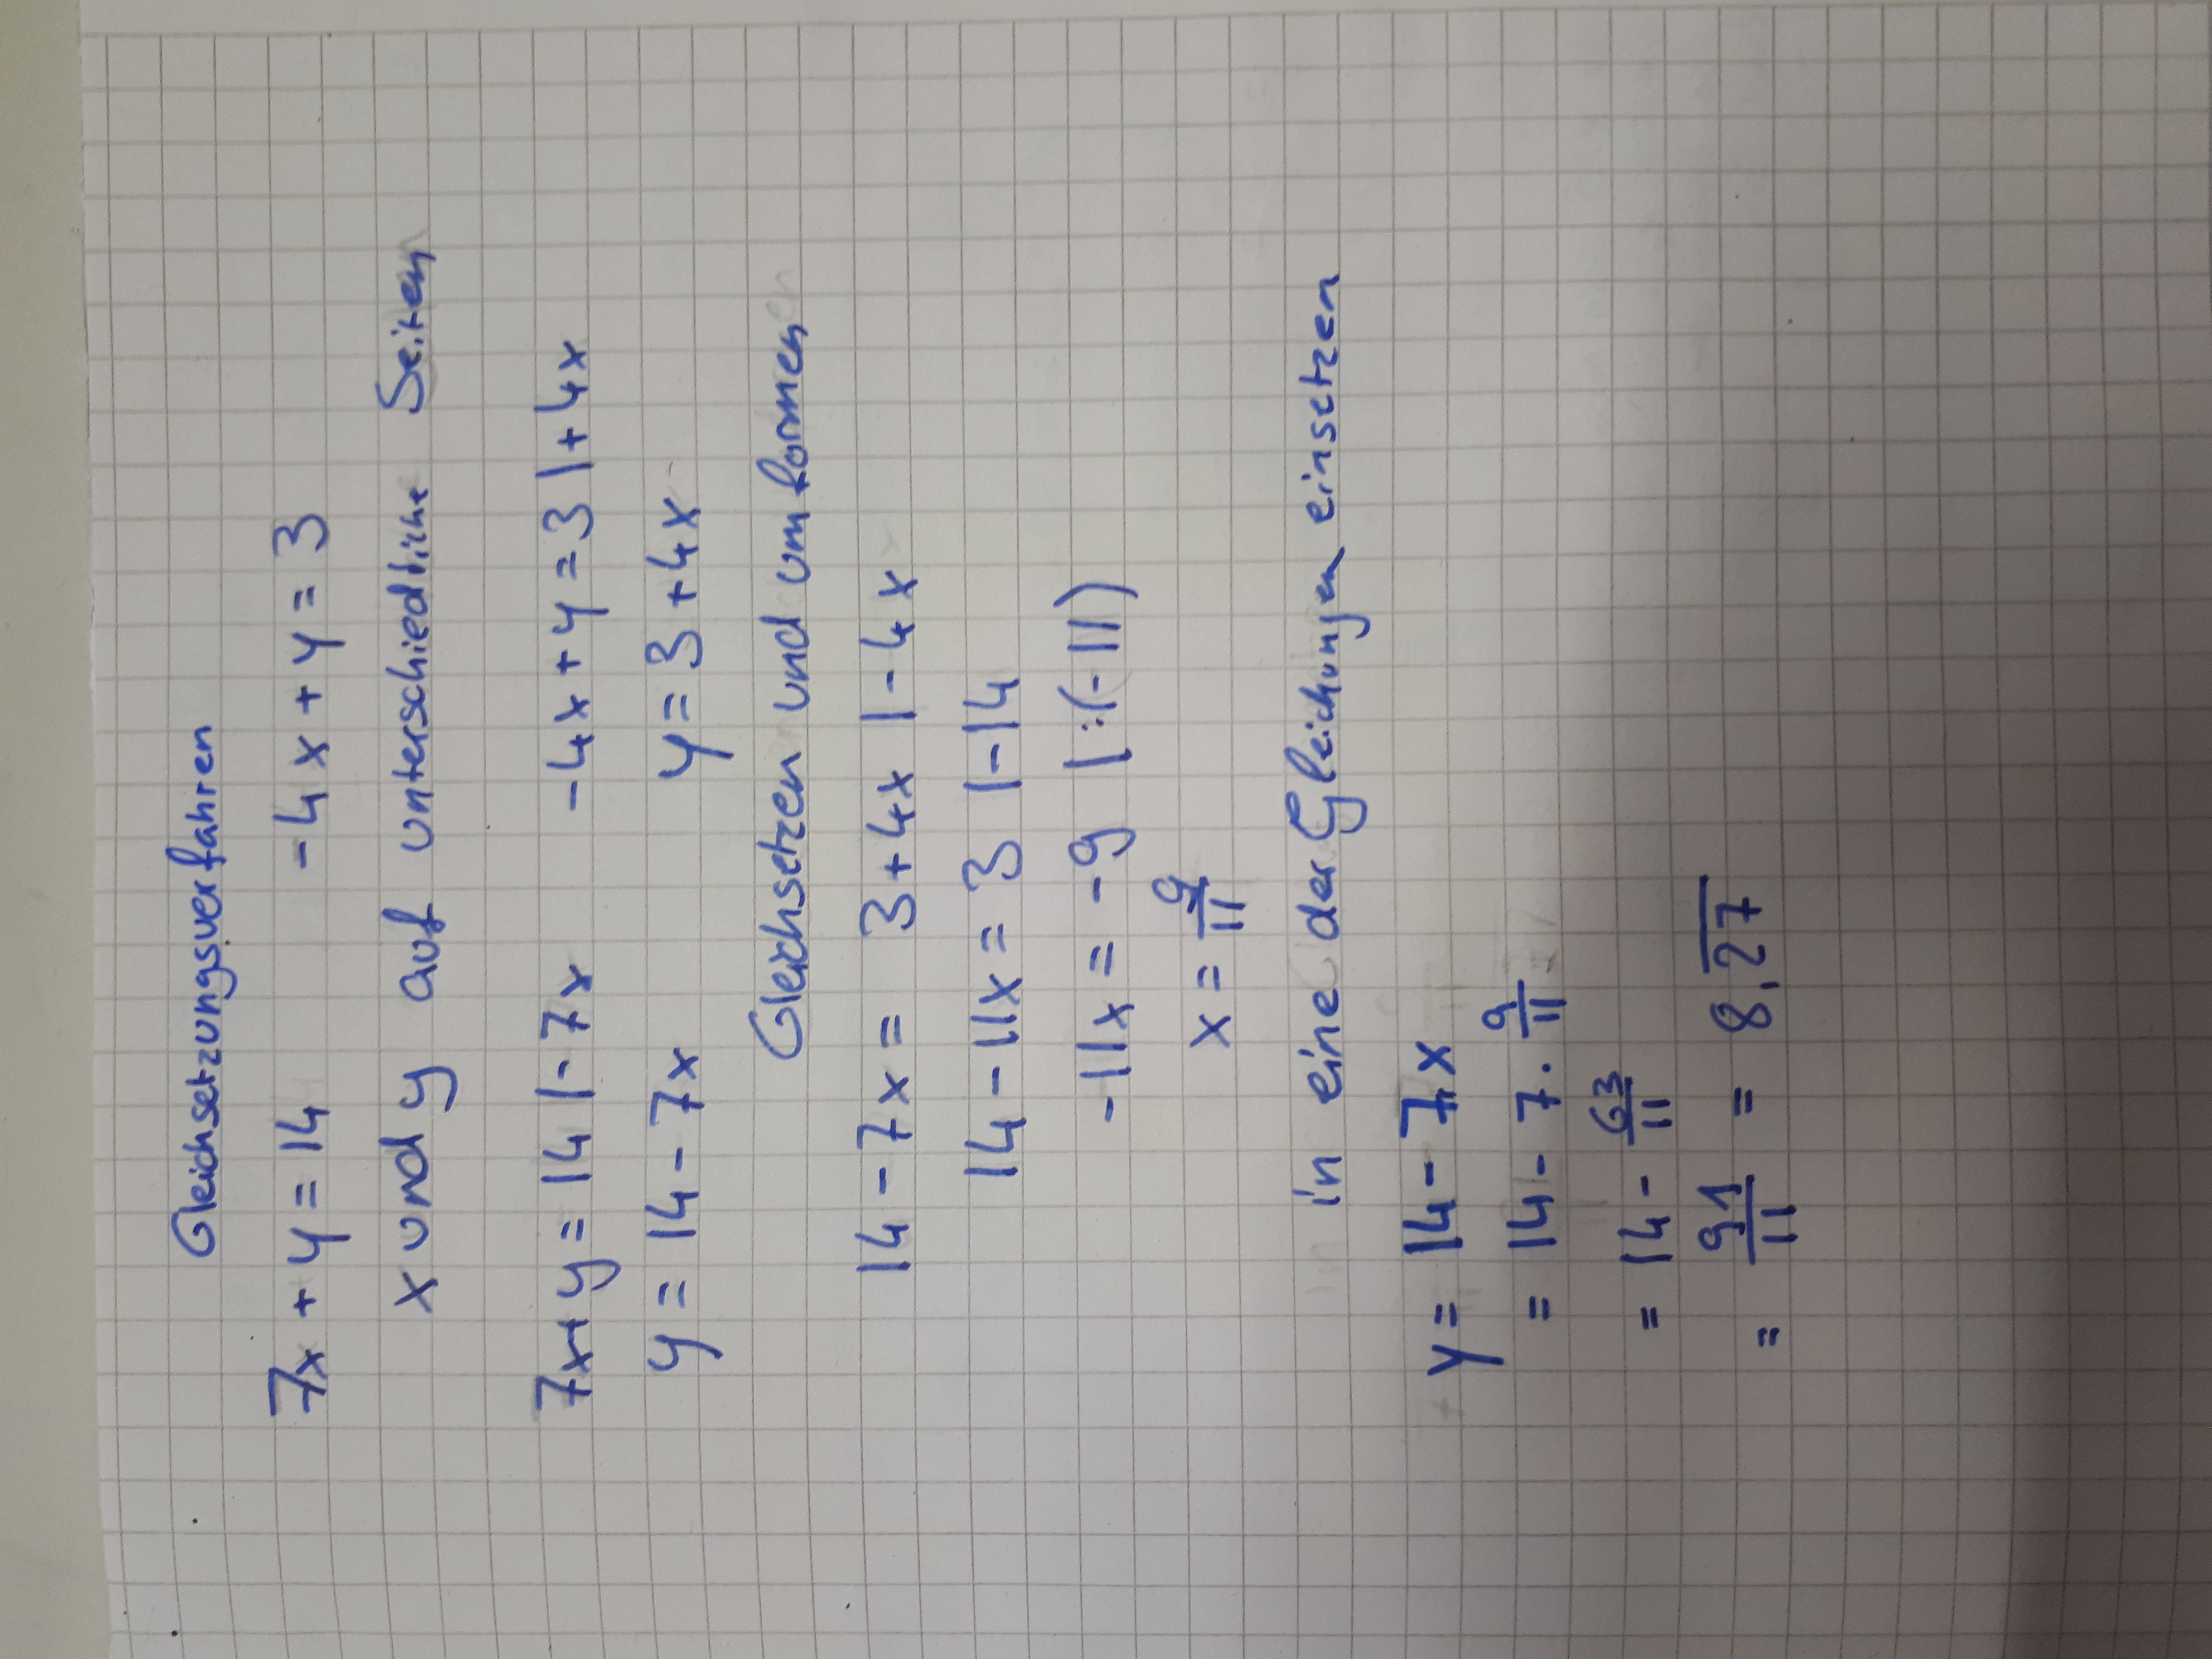 Gleichsetzungsverfahren
7x + y = 14 -4x + y = 3
x und y auf unterschiedliche Seiten
7x + y = 14 |-7x -4x + y = 3 |+4x
y = 14 - 7x y = 3 + 4x
Gleichsetzen und umformen
14 - 7x = 3 + 4x |-4x
14 - 11x = 3 |-14
-11x = -9 |:(-11)
x = 9/11
in eine der Gleichungen einsetzen
y = 14 - 7x
= 14 - 7 · 9/11
= 14 - 63/11
= 91/11 = 8,2̅7̅